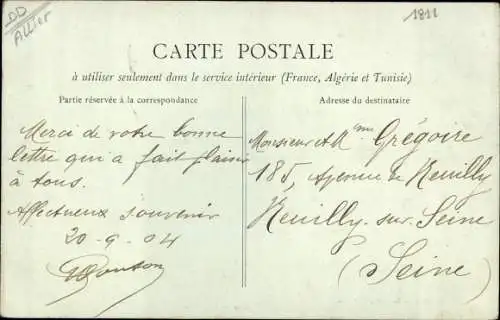 DD
Allier
1811
CARTE POSTALE
à utiliser seulement dans le service intérieur (France, Algérie et Tunisie)
Partie réservée à la correspondance
Merci de votre bonne
lettre qui a fait plaisir
à tous.
Affectueux souvenir
20-9-04
Adresse du destinataire
Monsieur et Mme Grégoire
185, Avenue de Neuilly
Neuilly-sur-Seine
(Seine)